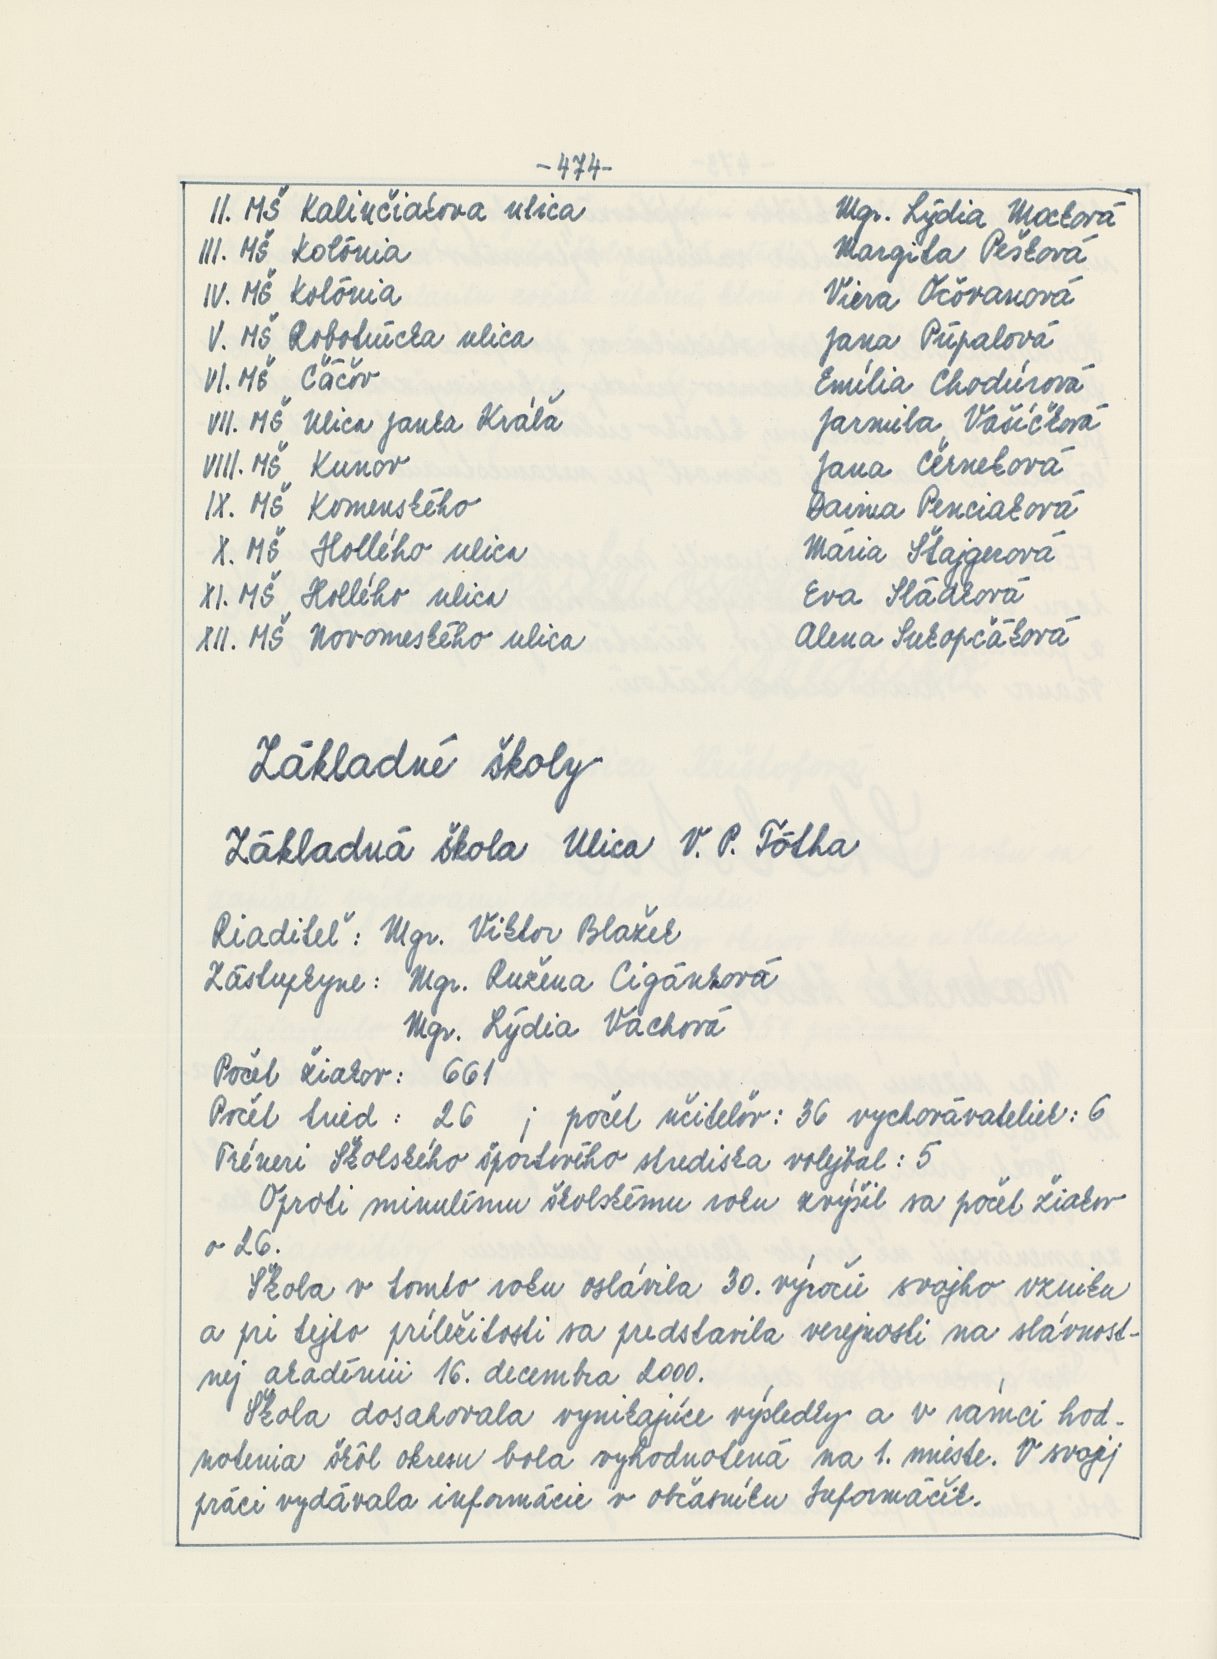 -474-
II. MŠ Kalinčiakova ulica Mgr. Lýdia Mocková
III. MŠ Kolónia Margita Pešková
IV. MŠ Kolónia Viera Očovanová
V. MŠ Robotnícka ulica Jana Púpalová
VI. MŠ Čáčov Emília Chodúrová
VII. MŠ Ulica Janka Kráľa Jarmila Vašíčková
VIII. MŠ Kunov Jana Černeková
IX. MŠ Komenského Darina Penciaková
X. MŠ Hollého ulica Mária Štajgerová
XI. MŠ Hollého ulica Eva Sládková
XII. MŠ Novomeského ulica Alena Sukopčáková
Základné školy
Základná škola Ulica V. P. Tótha
Riaditeľ: Mgr. Viktor Blažek
Zástupkyne: Mgr. Ružena Cigánková
Mgr. Lýdia Vachová
Počet žiakov: 661
Počet tried: 26 ; počet učiteľov: 36 vychovávateliek: 6
Tréneri Školského športového strediska volejbal: 5
Oproti minulému školskému roku zvýšil sa počet žiakov
o 26.
Škola v tomto roku oslávila 30. výročie svojho vzniku
a pri tejto príležitosti sa predstavila verejnosti na slávnost-
nej akadémii 16. decembra 2000.
Škola dosahovala vynikajúce výsledky a v rámci hod-
notenia škôl okresu bola vyhodnotená na 1. mieste. V svojej
práci vydávala informácie v občasníku Informáčik.